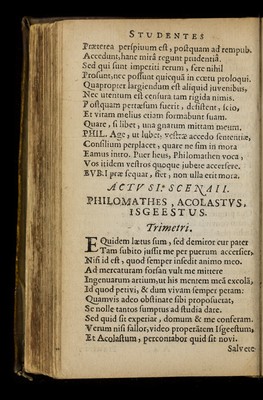 STUDENTES
Præterea perspiuum est, postquam ad rempub.
Accedunt, hanc mirâ regunt prudentiâ.
Sed qui sunt imperiti rerum, fere nihil
Prosunt, nec possunt quicquã in cœtu proloqui.
Quapropter largiendum est aliquid juvenibus,
Nec utentum est censura tam rigida nimis.
Postquam pertæsum fuerit, desistent, scio,
Et vitam melius etiam formabunt suam.
Quare, si libet, una gnatum mittam meum.
PHIL. Age, ut lubet, vestræ accedo sententiæ,
Consilium perplacet, quare ne sim in mora
Eamus intro. Puer heus, Philomathen voca,
Vos itidem vestros quoque jubete accersere.
EVB. I præ sequar, fiet, non ulla erit mora.
ACTVS I. SCENA II.
PHILOMATHES, ACOLASTVS,
ISGEESTVS.
Trimetri.
EQuidem lætus sum, sed demiror cur pater
Tam subito jussit me per puerum accersier,
Nisi id est, quod semper insedit animo meo.
Ad mercaturam forsan vult me mittere
Ingenuarum artium, ut his mentem meã excolã,
Id quod petivi, & dum vivam semper petam:
Quamvis adeo obstinate sibi proposuerat,
Se nolle tantos sumptus ad studia dare.
Sed quid sit experiar, domum & me conferam.
Verum nisi fallor, video properãtem Isgeestum,
Et Acolastum, percontabor quid sit novi.
Salvete